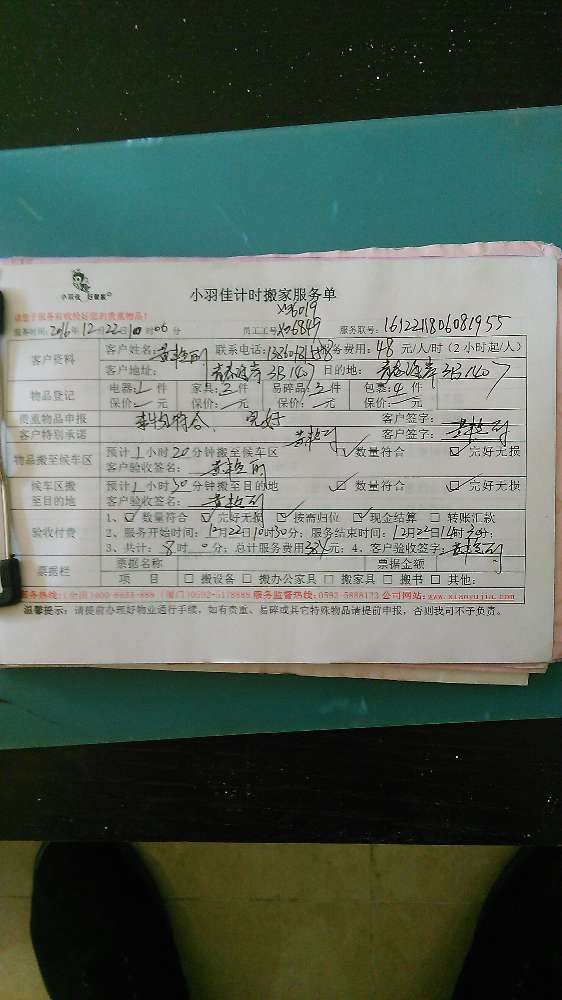 小羽佳 好管家
小羽佳计时搬家服务单
请您于服务前收验好您的贵重物品!
XM6019
服务时间: 2016年12月22日10时06分 员工工号: XM6849 服务联号: 161221806081955
客户资料 客户姓名: 联系电话: 服务费用: 48 元/人/时(2小时起/人)
客户地址: 3B1407 目的地: 3B1407
物品登记 电器: 1 件 家具: 2 件 易碎品: 3 件 包裹: 4 件
保价: 元 保价: 元 保价: 元 保价: 元
贵重物品申报 符合、完好 客户签字:
客户特别承诺 客户签字:
物品搬至候车区 预计1小时20分钟搬至候车区 ☑数量符合 ☑完好无损
客户验收签名:
候车区搬至目的地 预计1小时30分钟搬至目的地 ☑数量符合 ☑完好无损
客户验收签名:
验收付费 1、☑数量符合 ☑完好无损 ☑按需归位 ☑现金结算 □转账汇款
2、服务开始时间: 12月22日10时30分; 服务结束时间: 12月22日14时30分;
3、共计: 8时0分; 总计服务费用 元; 4、客户验收签字:
票据栏 票据名称 票据金额
项 目 □搬设备 □搬办公家具 □搬家具 □搬书 □其他:
服务热线:(全国)400-8833-888 (厦门)0592-5178888 服务监督热线:0592-5888173 公司网站:www.xiaoyujia.com
温馨提示: 请提前办理好物业通行手续, 如有贵重、易碎或其它特殊物品请提前申报, 否则我司可不予负责。